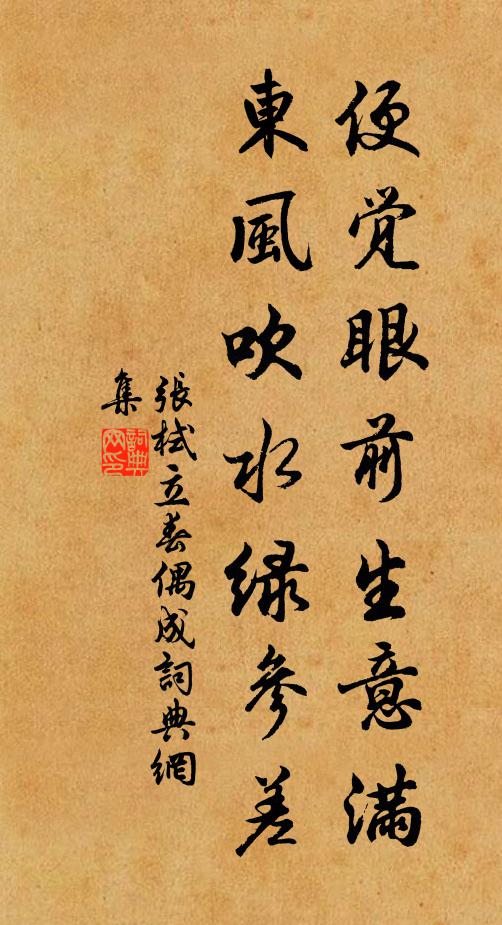 便觉眼前生意满
東風吹水绿參差
張栻立春偶成詞典網
集
詞典
网印